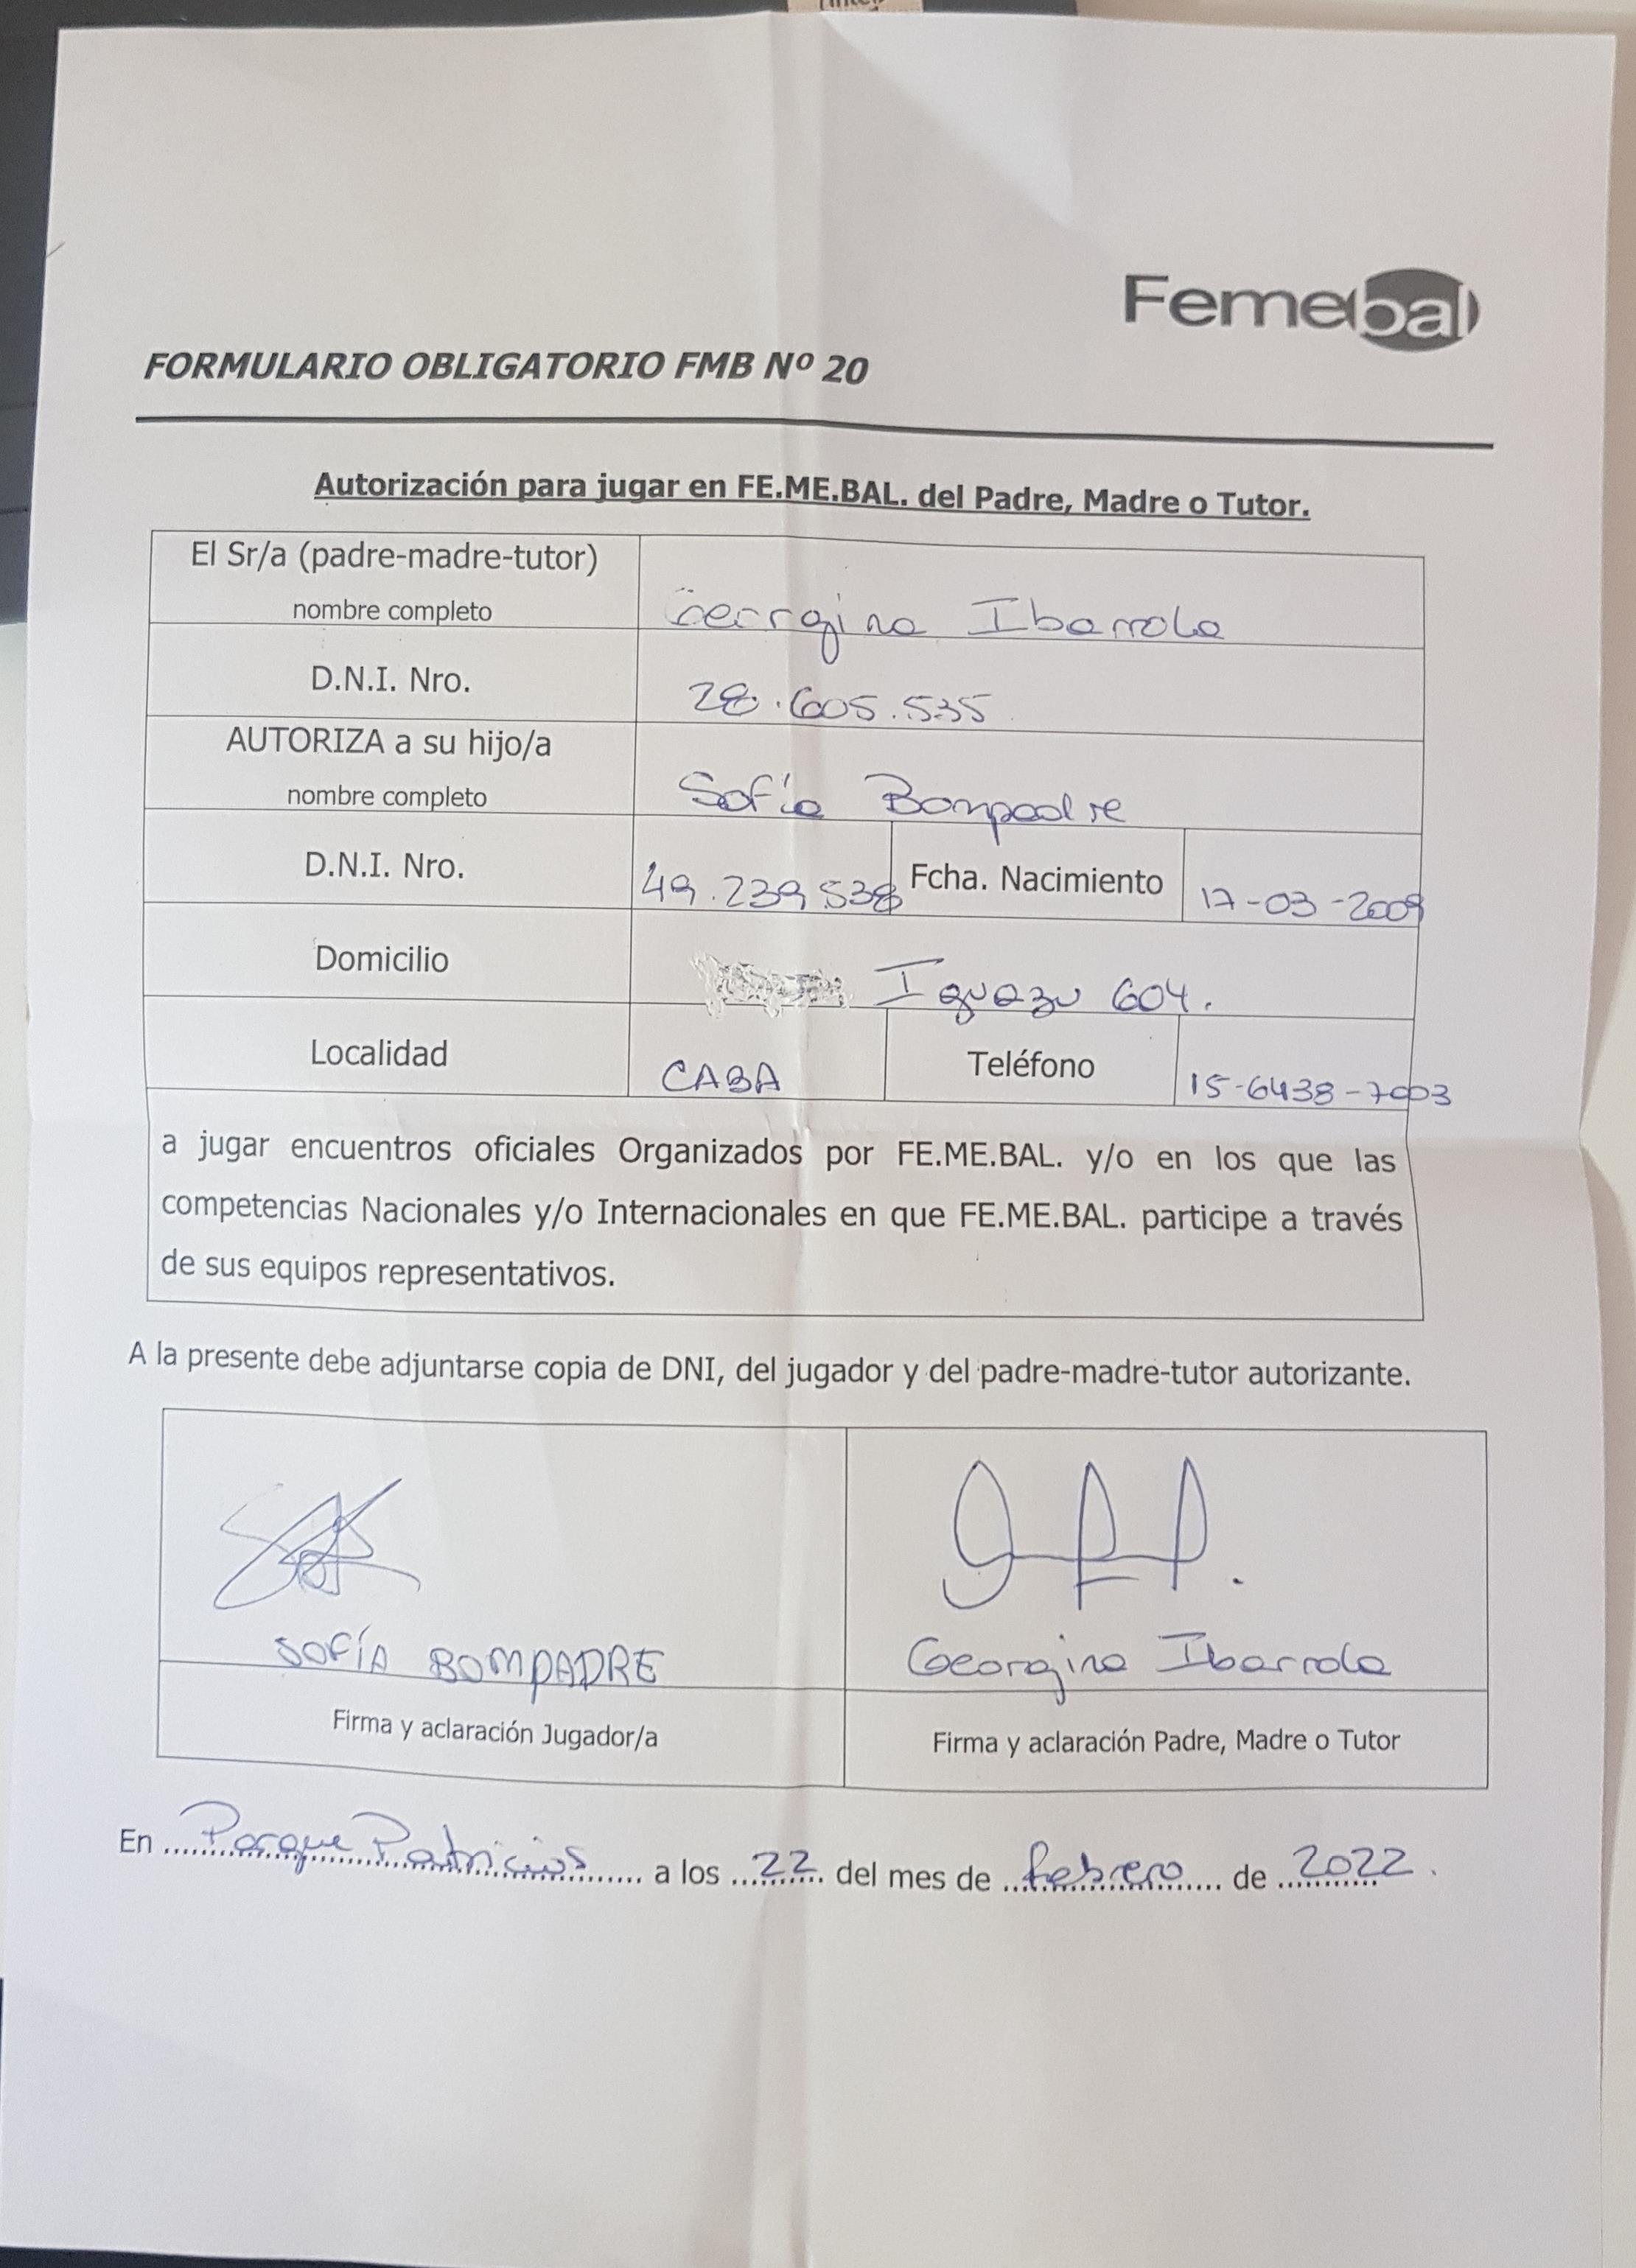 Femebal
FORMULARIO OBLIGATORIO FMB Nº 20
Autorización para jugar en FE.ME.BAL. del Padre, Madre o Tutor.
El Sr/a (padre-madre-tutor)
nombre completo
Georgina Ibarrola
D.N.I. Nro.
28.605.535
AUTORIZA a su hijo/a
nombre completo
Sofía Bompadre
D.N.I. Nro.
49.239.538
Fcha. Nacimiento
17-03-2009
Domicilio
Iguazu 604.
Localidad
CABA
Teléfono
15-6438-7003
a jugar encuentros oficiales Organizados por FE.ME.BAL. y/o en los que las
competencias Nacionales y/o Internacionales en que FE.ME.BAL. participe a través
de sus equipos representativos.
A la presente debe adjuntarse copia de DNI, del jugador y del padre-madre-tutor autorizante.
SOFÍA BOMPADRE
Firma y aclaración Jugador/a
Georgina Ibarrola
Firma y aclaración Padre, Madre o Tutor
En Parque Patricios a los 22 del mes de febrero de 2022.